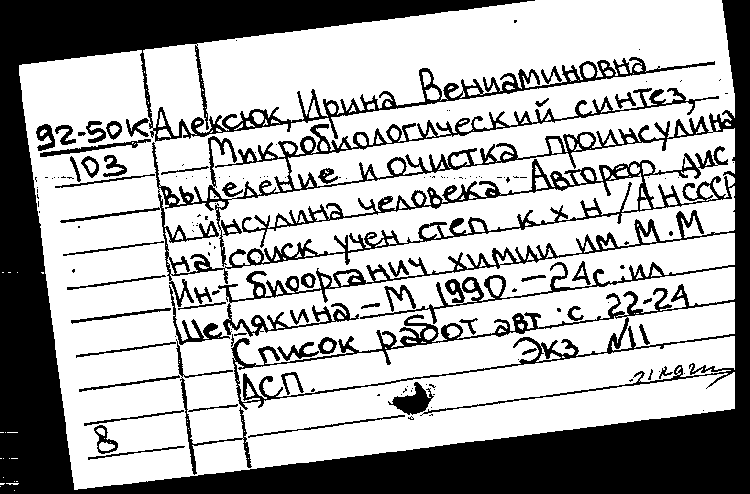 92-50К Алексюк, Ирина Вениаминовна
103 Микробиологический синтез,
выделение и очистка проинсулина
и инсулина человека: Автореф. дис.
на соиск. учен. степ. к.х.н. / АНСССР
Ин-т биоорганич. химии им. М.М
Шемякина. - М., 1990. - 24с.: ил.
Список работ авт.: с. 22-24.
ДСП. Экз. №11.
8